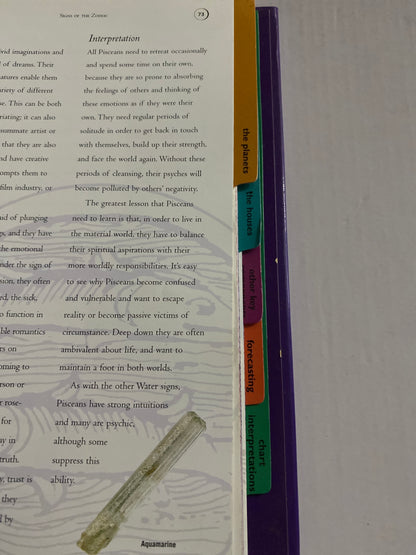 SIGNS OF THE ZODIAC
73
vivid imaginations and
d of dreams. Their
natures enable them
variety of different
se. This can be both
striating; it can also
summate artist or
that they are also
nd have creative
ompts them to
film industry, or
ud of plunging
p, and they have
the emotional
nder the sign of
sion, they often
ed, the sick,
o function in
ble romantics
rs on
oming to
erson or
r rose-
for
ay in
truth.
y, trust is
they
d by
Interpretation
All Pisceans need to retreat occasionally
and spend some time on their own,
because they are so prone to absorbing
the feelings of others and thinking of
these emotions as if they were their
own. They need regular periods of
solitude in order to get back in touch
with themselves, build up their strength,
and face the world again. Without these
periods of cleansing, their psyches will
become polluted by others' negativity.
The greatest lesson that Pisceans
need to learn is that, in order to live in
the material world, they have to balance
their spiritual aspirations with their
more worldly responsibilities. It's easy
to see why Pisceans become confused
and vulnerable and want to escape
reality or become passive victims of
circumstance. Deep down they are often
ambivalent about life, and want to
maintain a foot in both worlds.
As with the other Water signs,
Pisceans have strong intuitions
and many are psychic,
although some
suppress this
ability.
Aquamarine
the planets
the houses
other key
forecasting
chart
interpretations